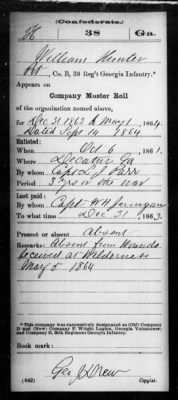 (Confederate.)
H 38 Ga.
William Hunter
Pvt, Co. B, 38 Reg't Georgia Infantry.*
Appears on
Company Muster Roll
of the organization named above,
for Dec 31 1863 to May 1, 1864.
Dated Sept 14 1864
Enlisted:
When Oct 6, 1861.
Where Decatur Ga
By whom Capt L. J. Parr
Period 3 yrs or the war
Last paid:
By whom Capt W H Jernigan
To what time Dec 31, 1863.
Present or absent Absent
Remarks: Absent from Wounds
received at Wilderness
May 5 1864
*This company was successively designated as (Old) Company
D and (New) Company F, Wright Legion, Georgia Volunteers;
and Company B, 38th Regiment Georgia Infantry.
Book mark:
Geo J Drew
(642) Copyist.